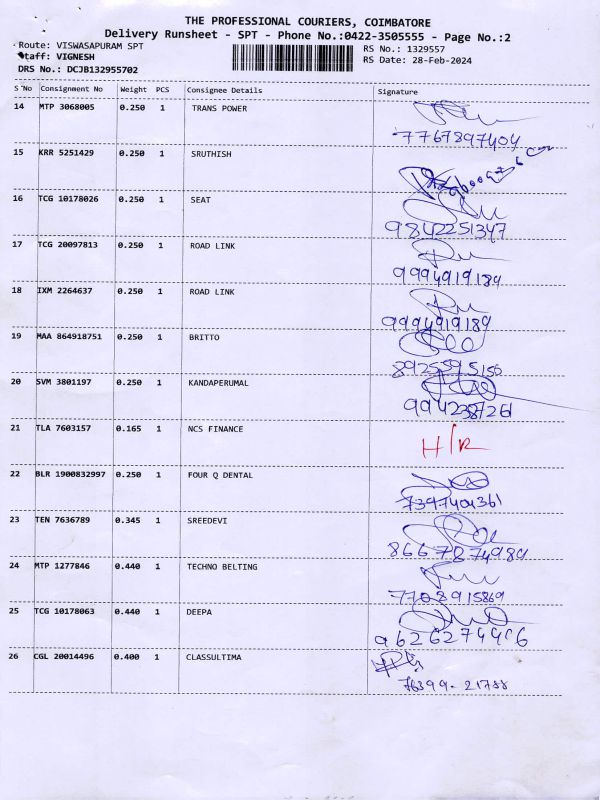 THE PROFESSIONAL COURIERS, COIMBATORE
Delivery Runsheet - SPT - Phone No.:0422-3505555 - Page No.:2
Route: VISWASAPURAM SPT
Staff: VIGNESH
DRS No.: DCJB132955702
RS No.: 1329557
RS Date: 28-Feb-2024
S No Consignment No Weight PCS Consignee Details Signature
14 MTP 3068005 0.250 1 TRANS POWER
7767897404
15 KRR 5251429 0.250 1 SRUTHISH
16 TCG 10178026 0.250 1 SEAT
9842251347
17 TCG 20097813 0.250 1 ROAD LINK
9994919189
18 IXM 2264637 0.250 1 ROAD LINK
9994919189
19 MAA 864918751 0.250 1 BRITTO
8925595150
20 SVM 3801197 0.250 1 KANDAPERUMAL
9942387261
21 TLA 7603157 0.165 1 NCS FINANCE
H/R
22 BLR 1900832997 0.250 1 FOUR Q DENTAL
7397404361
23 TEN 7636789 0.345 1 SREEDEVI
8667874989
24 MTP 1277846 0.440 1 TECHNO BELTING
7708915869
25 TCG 10178063 0.440 1 DEEPA
26 CGL 20014496 0.400 1 CLASSULTIMA
76399-21788